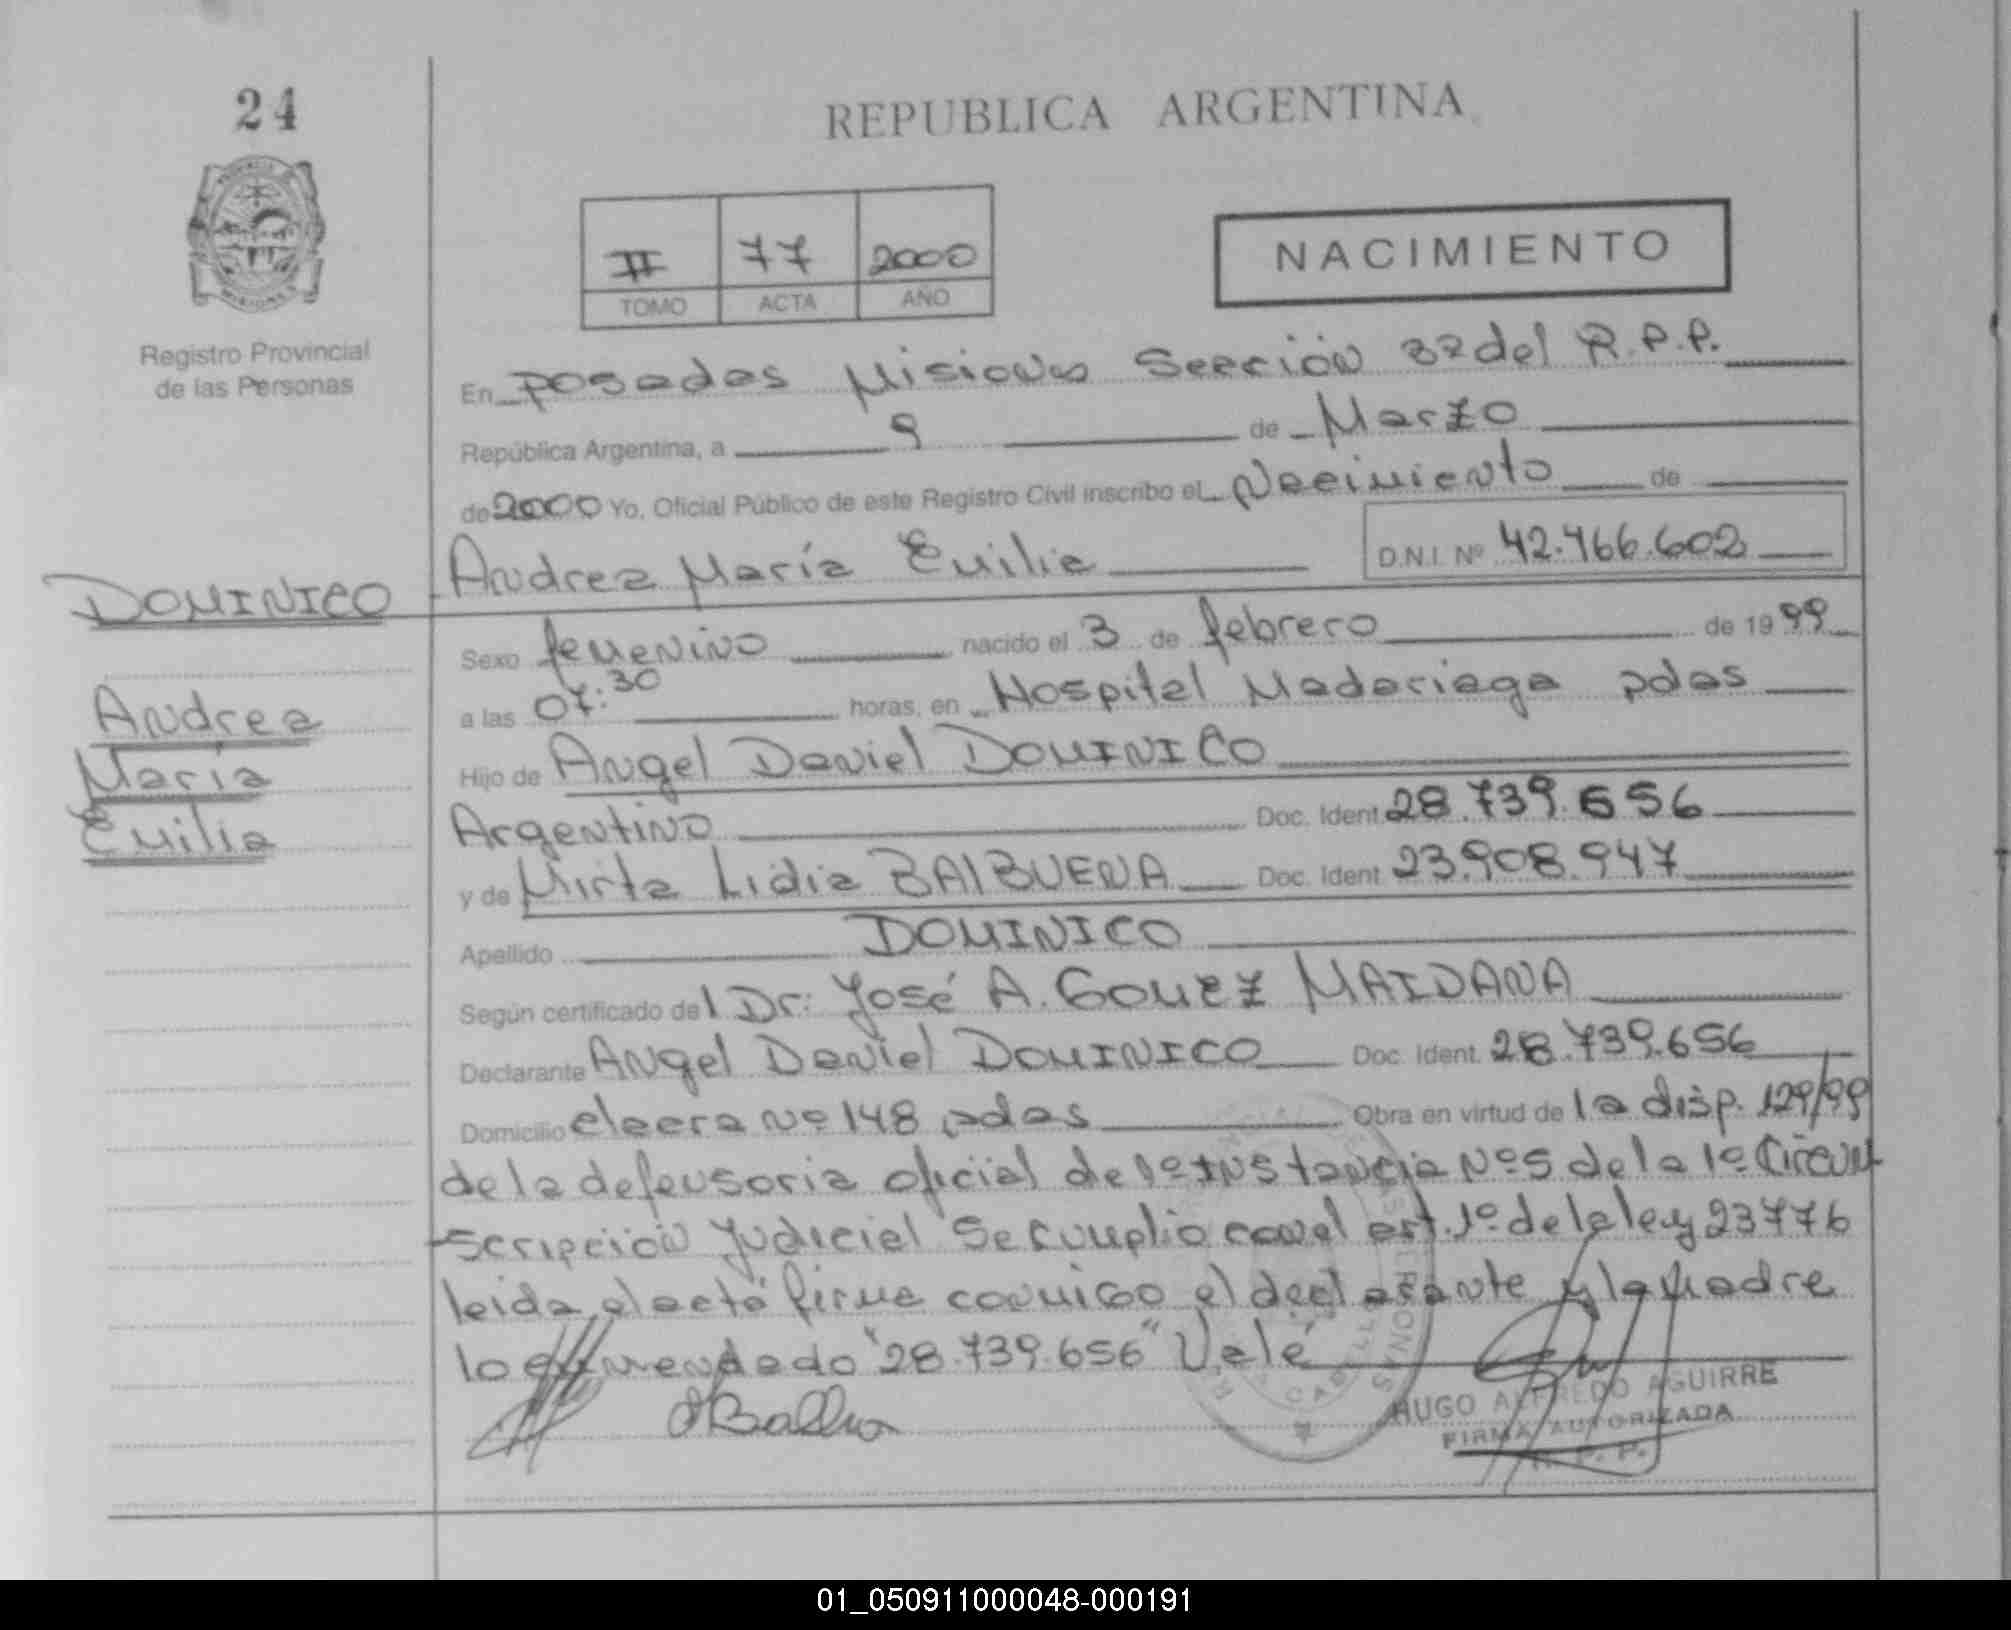 24
REPUBLICA ARGENTINA
Registro Provincial
de las Personas
II 77 2000
TOMO ACTA AÑO
NACIMIENTO
En Posadas Misiones Sección 32 del R.P.P.
República Argentina, a 9 de Marzo
de 2000 Yo, Oficial Público de este Registro Civil inscribo el Nacimiento de
Andrea María Emilia D.N.I. Nº 42.466.602
DOMINICO
Andrea
María
Emilia
Sexo femenino nacido el 3 de febrero de 1999
a las 07:30 horas, en Hospital Madariaga pdas
Hijo de Angel Daniel DOMINICO
Argentino Doc. Ident. 28.739.656
y de Mirta Lidia BALBUENA Doc. Ident. 23.908.947
Apellido DOMINICO
Según certificado del Dr: José A. Gomez MAIDANA
Declarante Angel Daniel DOMINICO Doc. Ident. 28.739.656
Domicilio chacra Nº 148 pdas Obra en virtud de la disp. 129/99
de la defensoria oficial de 1º INstancia Nº 5 de la 1º Circun
-scripción Judicial Se cumplio con el art. 1º de la ley 23776
leida el acta firma conmigo el declarante y la madre
lo enmendado "28.739.656" Vale
HUGO ALFREDO AGUIRRE
FIRMA AUTORIZADA
R. P. P.
01_050911000048-000191